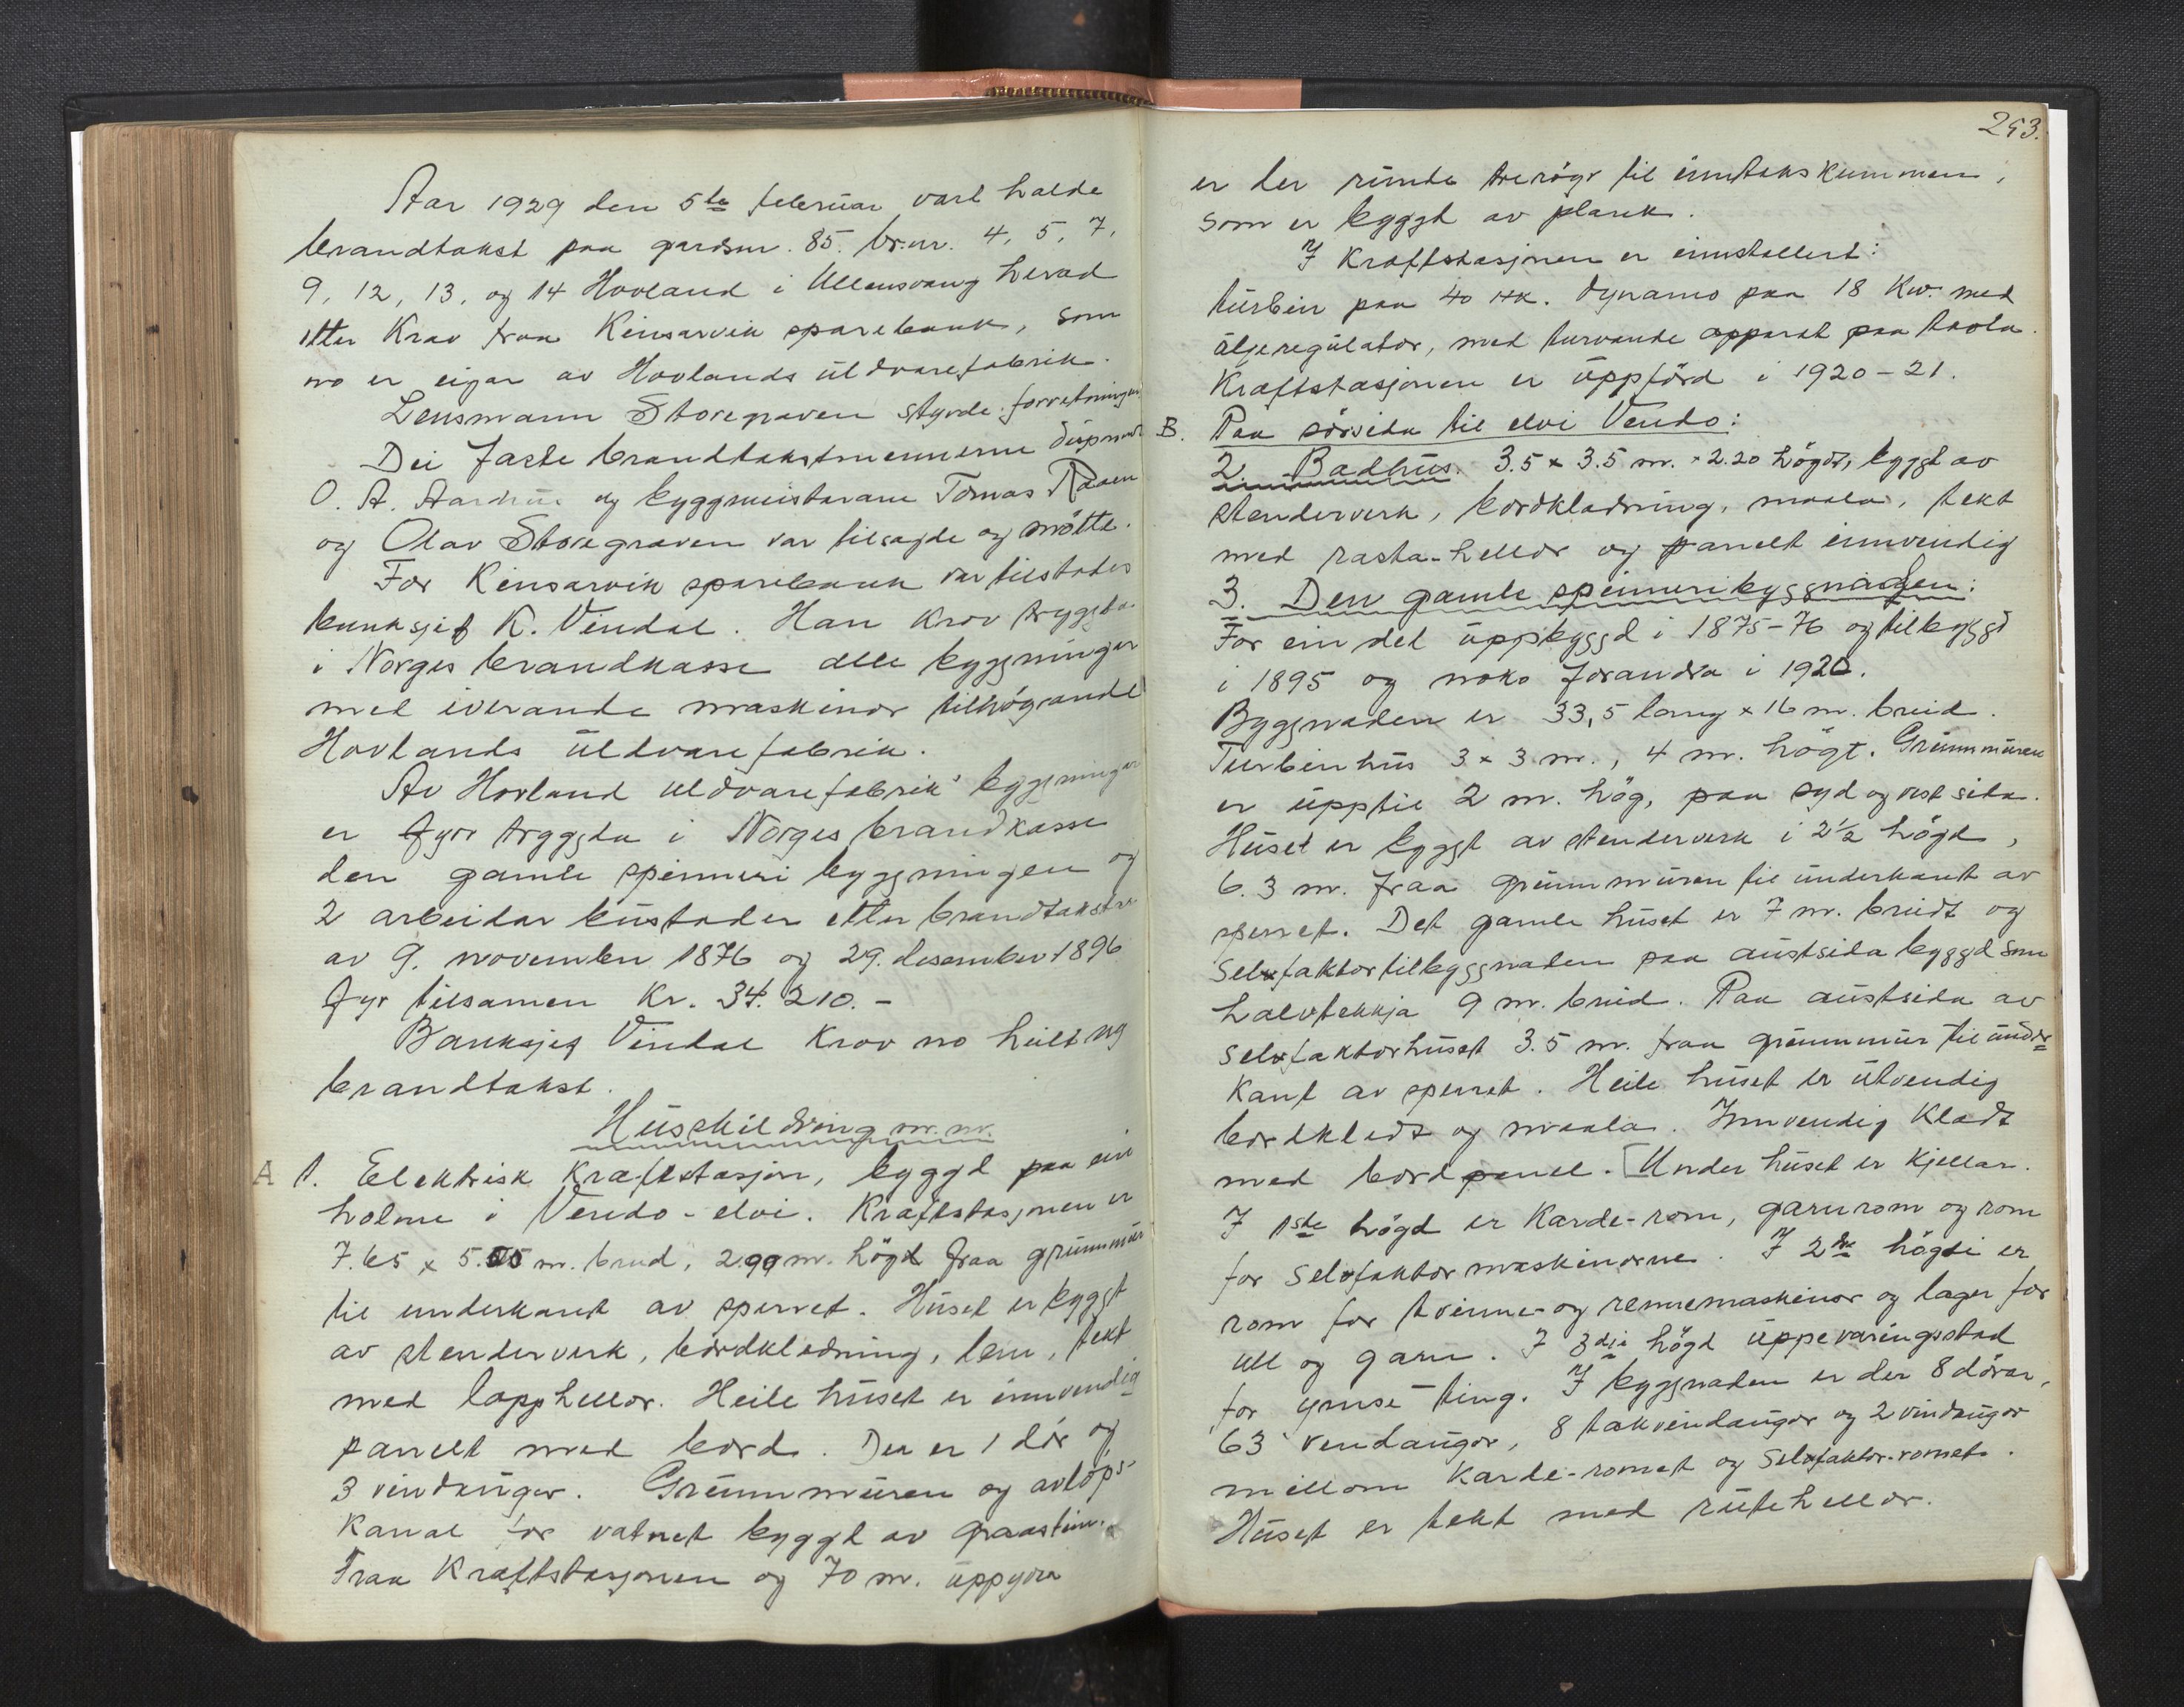 Aar 1929 den 5te februar vart halde
brandtakst paa gardsnr. 85. br.nr. 4, 5, 7,
9, 12, 13, og 14 Hovland i Ullensvang herad
etter Krav fraa Kinsarvik sparebank, som
no er eigar av Hovlands uldvarefabrik.
Lensmann Storegraven styrde forretningen
Dei faste brandtakstmennerne
O. A. Aarhus og byggmeistarane Tomas Raaen
og Olav Storegraven var tilsagde og mötte.
For Kinsarvik sparebank var tilstades
banksjef K. Vendal. Han Krov trygda
i Norges brandkasse alle bygningar
med iverande maskinor tilhögrande
Hovlands uldvarefabrik.
Av Hovland uldvarefabrik's bygningar
er fyrr trygda i Norges brandkasse
den gamle spinneri bygningen og
2 arbeidar bustader etter brandtakstar
av 9. november 1876 og 29. desember 1896
fyr tilsamen Kr. 34.210.-
Banksjef Vendal Krov no heilt ny
brandtakst.
Husskildring m.m.
A 1. Elektrisk Kraftstasjon, bygd paa ein
holme i Vendo-elvi. Kraftstasjonen er
7.65 x 5.55 m. breid, 2.90 m. högd fraa grunnmur
til underkant av sperret. Huset er bygt
av stenderverk, bordkledning, lem, tekt
med lapphellor. Heile huset er innvendig
panelt med bord. Der er 1 dör og
3 vindaugor. Grunnmuren og avlöps-
Kanal for vatnet bygt av graastein.
Fraa Kraftstasjonen og 70 m. uppyver
253.
er der runde treröyr til inntakskummen,
som er bygt av plank.
I Kraftstasjonen er innstallert:
turbin paa 40 HK. dynamo paa 18 Kw. med
oljeregulator, med turvande apparat paa tavla.
Kraftstasjonen er uppförd i 1920-21.
B. Paa sörsida til elvi Vendo:
2. Badhus. 3.5 x 3.5 m. x 2.20 högdr, bygt av
stenderverk, bordkladning, maala, tekt
med rasta-hellor og panelt innvendig
3. Den gamle spinneribyggnaden:
For ein del uppbygd i 1875-76 og tilbygd
i 1895 og noko forandra i 1920.
Byggnaden er 33,5 lang x 16 m. breid.
Turbinhus 3 x 3 m., 4 m. högt. Grunnmuren
er upptil 2 m. hög, paa syd og vest sida.
Huset er bygt av stenderverk i 2½ högd,
6.3 m. fraa grunnmuren til underkant av
sperret. Det gamle huset er 7 m. breidt og
selvfaktortilbyggnaden paa austsida bygd som
halvtekkja 9 m. breid. Paa austsida av
selvfaktorhuset 3.5 m. fraa grunnmur til under=
kant av sperret. Heile huset er utvendig
bordkledt og maala. Innvendig Kladt
med bordpanel. [Under huset er Kjellar.
I 1ste högd er Karde-rom, garnrom og rom
for selvfaktormaskinorne. I 2dre högdi er
rom for tvinne- og rennemaskinor og lager for
ull og garn. I 3dje högd uppevaringsstad
for ymse ting. I byggnaden er der 8 dörar,
63 vendaugor, 8 takvindaugor og 2 vindaugor
millom Karde-romet og Selvfaktor-romet.
Huset er tekt med rutehellor.